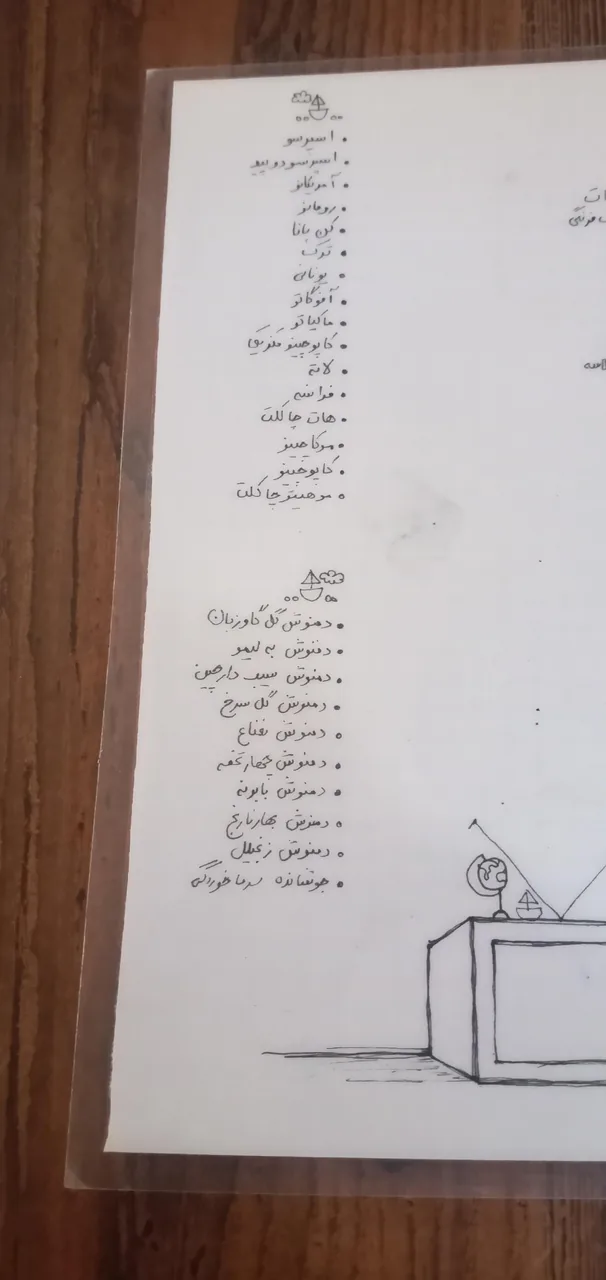 اسپرسو
اسپرسو دوپیو
آمریکانو
رومانو
کن پانا
ترک
یونانی
آفوگاتو
ماکیاتو
لاته
فرانسه
هات چاکلت
موکاچینو
کاپوچینو
موهیتو چاکلت
دمنوش گل گاوزبان
دمنوش به لیمو
دمنوش سیب دارچین
دمنوش گل سرخ
دمنوش نعناع
دمنوش چهارتخمه
دمنوش بابونه
دمنوش بهارنارنج
دمنوش زنجبیل
جوشانده سرماخوردگی